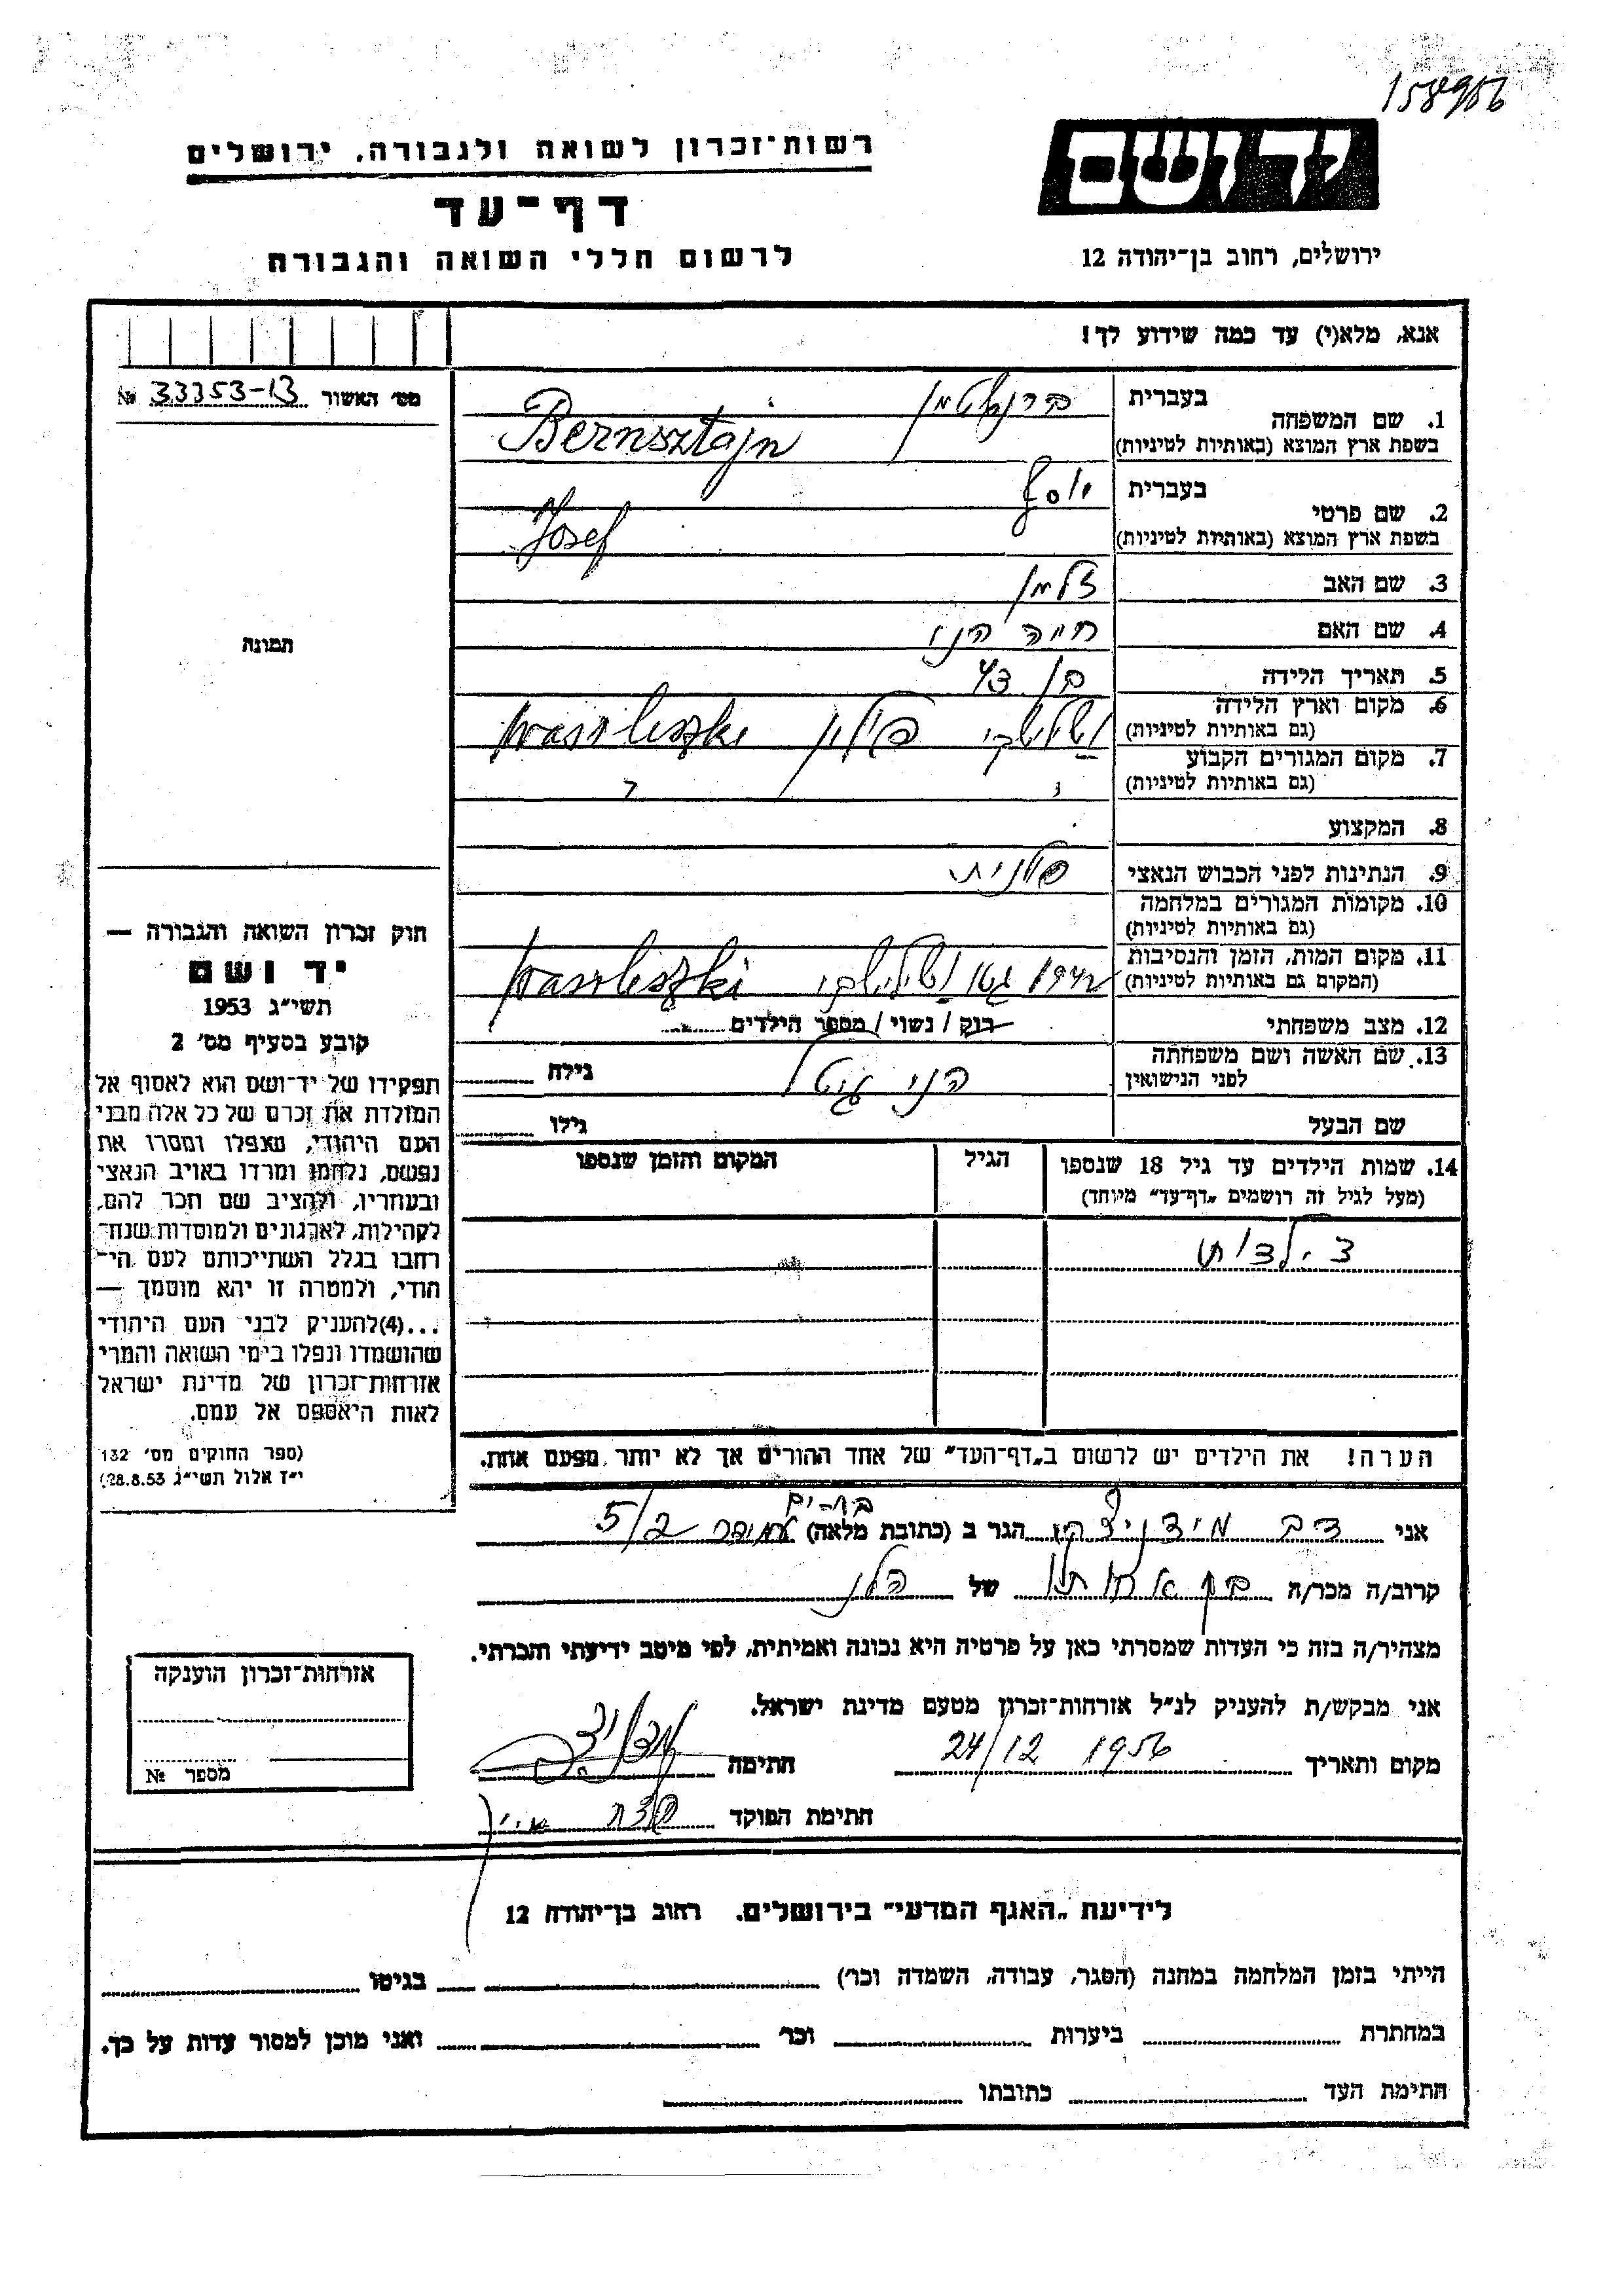 158956
רשות־זכרון לשואה ולגבורה, ירושלים
דף־עד
לרשום חללי השואה והגבורה
יד ושם
ירושלים, רחוב בן־יהודה 12
אנא, מלא(י) עד כמה שידוע לך!
מס׳ האשור 33353-13 №
1. שם המשפחה
בעברית ברנשטיין
בשפת ארץ המוצא (באותיות לטיניות) Bernsztajn
2. שם פרטי
בעברית יוסף
בשפת ארץ המוצא (באותיות לטיניות) Josef
3. שם האב זלמן
4. שם האם חיה
5. תאריך הלידה בן
6. מקום וארץ הלידה
(גם באותיות לטיניות) וסילישקי פולין Wasiliszki
7. מקום המגורים הקבוע
(גם באותיות לטיניות)
8. המקצוע
9. הנתינות לפני הכבוש הנאצי פולנית
10. מקומות המגורים במלחמה
(גם באותיות לטיניות)
11. מקום המות, הזמן והנסיבות
(המקום גם באותיות לטיניות) 1942 גטו וסילישקי Wasiliszki
12. מצב משפחתי רוק / נשוי / מספר הילדים
13. שם האשה ושם משפחתה
לפני הנישואין גילה
שם הבעל גילו
14. שמות הילדים עד גיל 18 שנספו
(מעל לגיל זה רושמים „דף־עד״ מיוחד)
הגיל
המקום והזמן שנספו
3 ילדות
הערה! את הילדים יש לרשום ב„דף־העד״ של אחד ההורים אך לא יותר מפעם אחת.
תמונה
חוק זכרון השואה והגבורה —
יד ושם
תשי״ג 1953
קובע בסעיף מס׳ 2
תפקידו של יד־ושם הוא לאסוף אל
המולדת את זכרם של כל אלה מבני
העם היהודי, שנפלו ומסרו את
נפשם, נלחמו ומרדו באויב הנאצי
ובעוזריו, ולהציב שם וזכר להם,
לקהילות, לארגונים ולמוסדות שנח־
רבו בגלל השתייכותם לעם הי־
הודי, ולמטרה זו יהא מוסמך —
...(4)להעניק לבני העם היהודי
שהושמדו ונפלו בימי השואה והמרי
אזרחות־זכרון של מדינת ישראל
לאות היאספם אל עמם.
(ספר החוקים מס׳ 132
י״ז אלול תשי״ג 28.8.53)
אני דב הגר ב (כתובת מלאה) עמידר 5/2
קרוב/ה מכר/ה של
מצהיר/ה בזה כי העדות שמסרתי כאן על פרטיה היא נכונה ואמיתית, לפי מיטב ידיעתי והכרתי.
אני מבקש/ת להעניק לנ״ל אזרחות־זכרון מטעם מדינת ישראל.
מקום ותאריך 24/12 1956 חתימה
חתימת הפוקד
אזרחות־זכרון הוענקה
מספר №
לידיעת „האגף המדעי״ בירושלים. רחוב בן־יהודה 12
הייתי בזמן המלחמה במחנה (הסגר, עבודה, השמדה וכר׳) בגיטו
במחתרת ביערות וכר׳ ואני מוכן למסור עדות על כך.
חתימת העד כתובתו